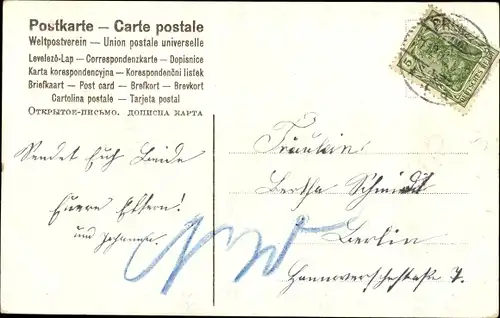 Postkarte — Carte postale
Weltpostverein — Union postale universelle
Levelező-Lap — Correspondenzkarte — Dopisnice
Karta korespondencyjna — Korespondenční lístek
Briefkaart — Post card — Brefkort — Brevkort
Cartolina postale — Tarjeta postal
Открытое-письмо. дописна карта
Sendet Euch Beide
Euere Eltern!
und
Fräulein
Bertha Schmidt
Berlin
Hannoverschestraße 7.